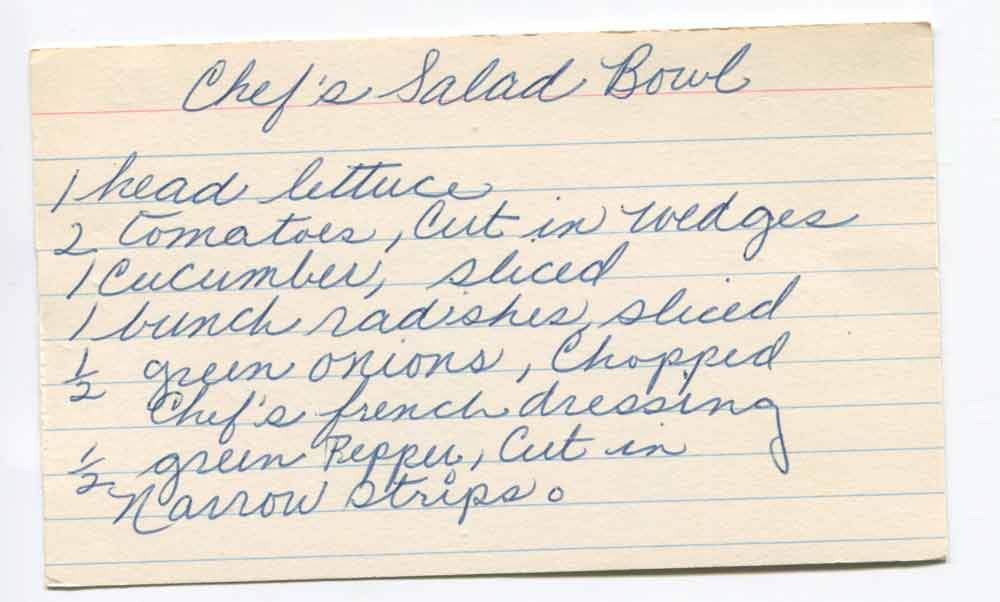 Chef's Salad Bowl
1 head lettuce
2 tomatoes, Cut in wedges
1 Cucumber, sliced
1 bunch radishes, sliced
1/2 green onions, Chopped
Chef's french dressing
1/2 green Pepper, Cut in
Narrow Strips.